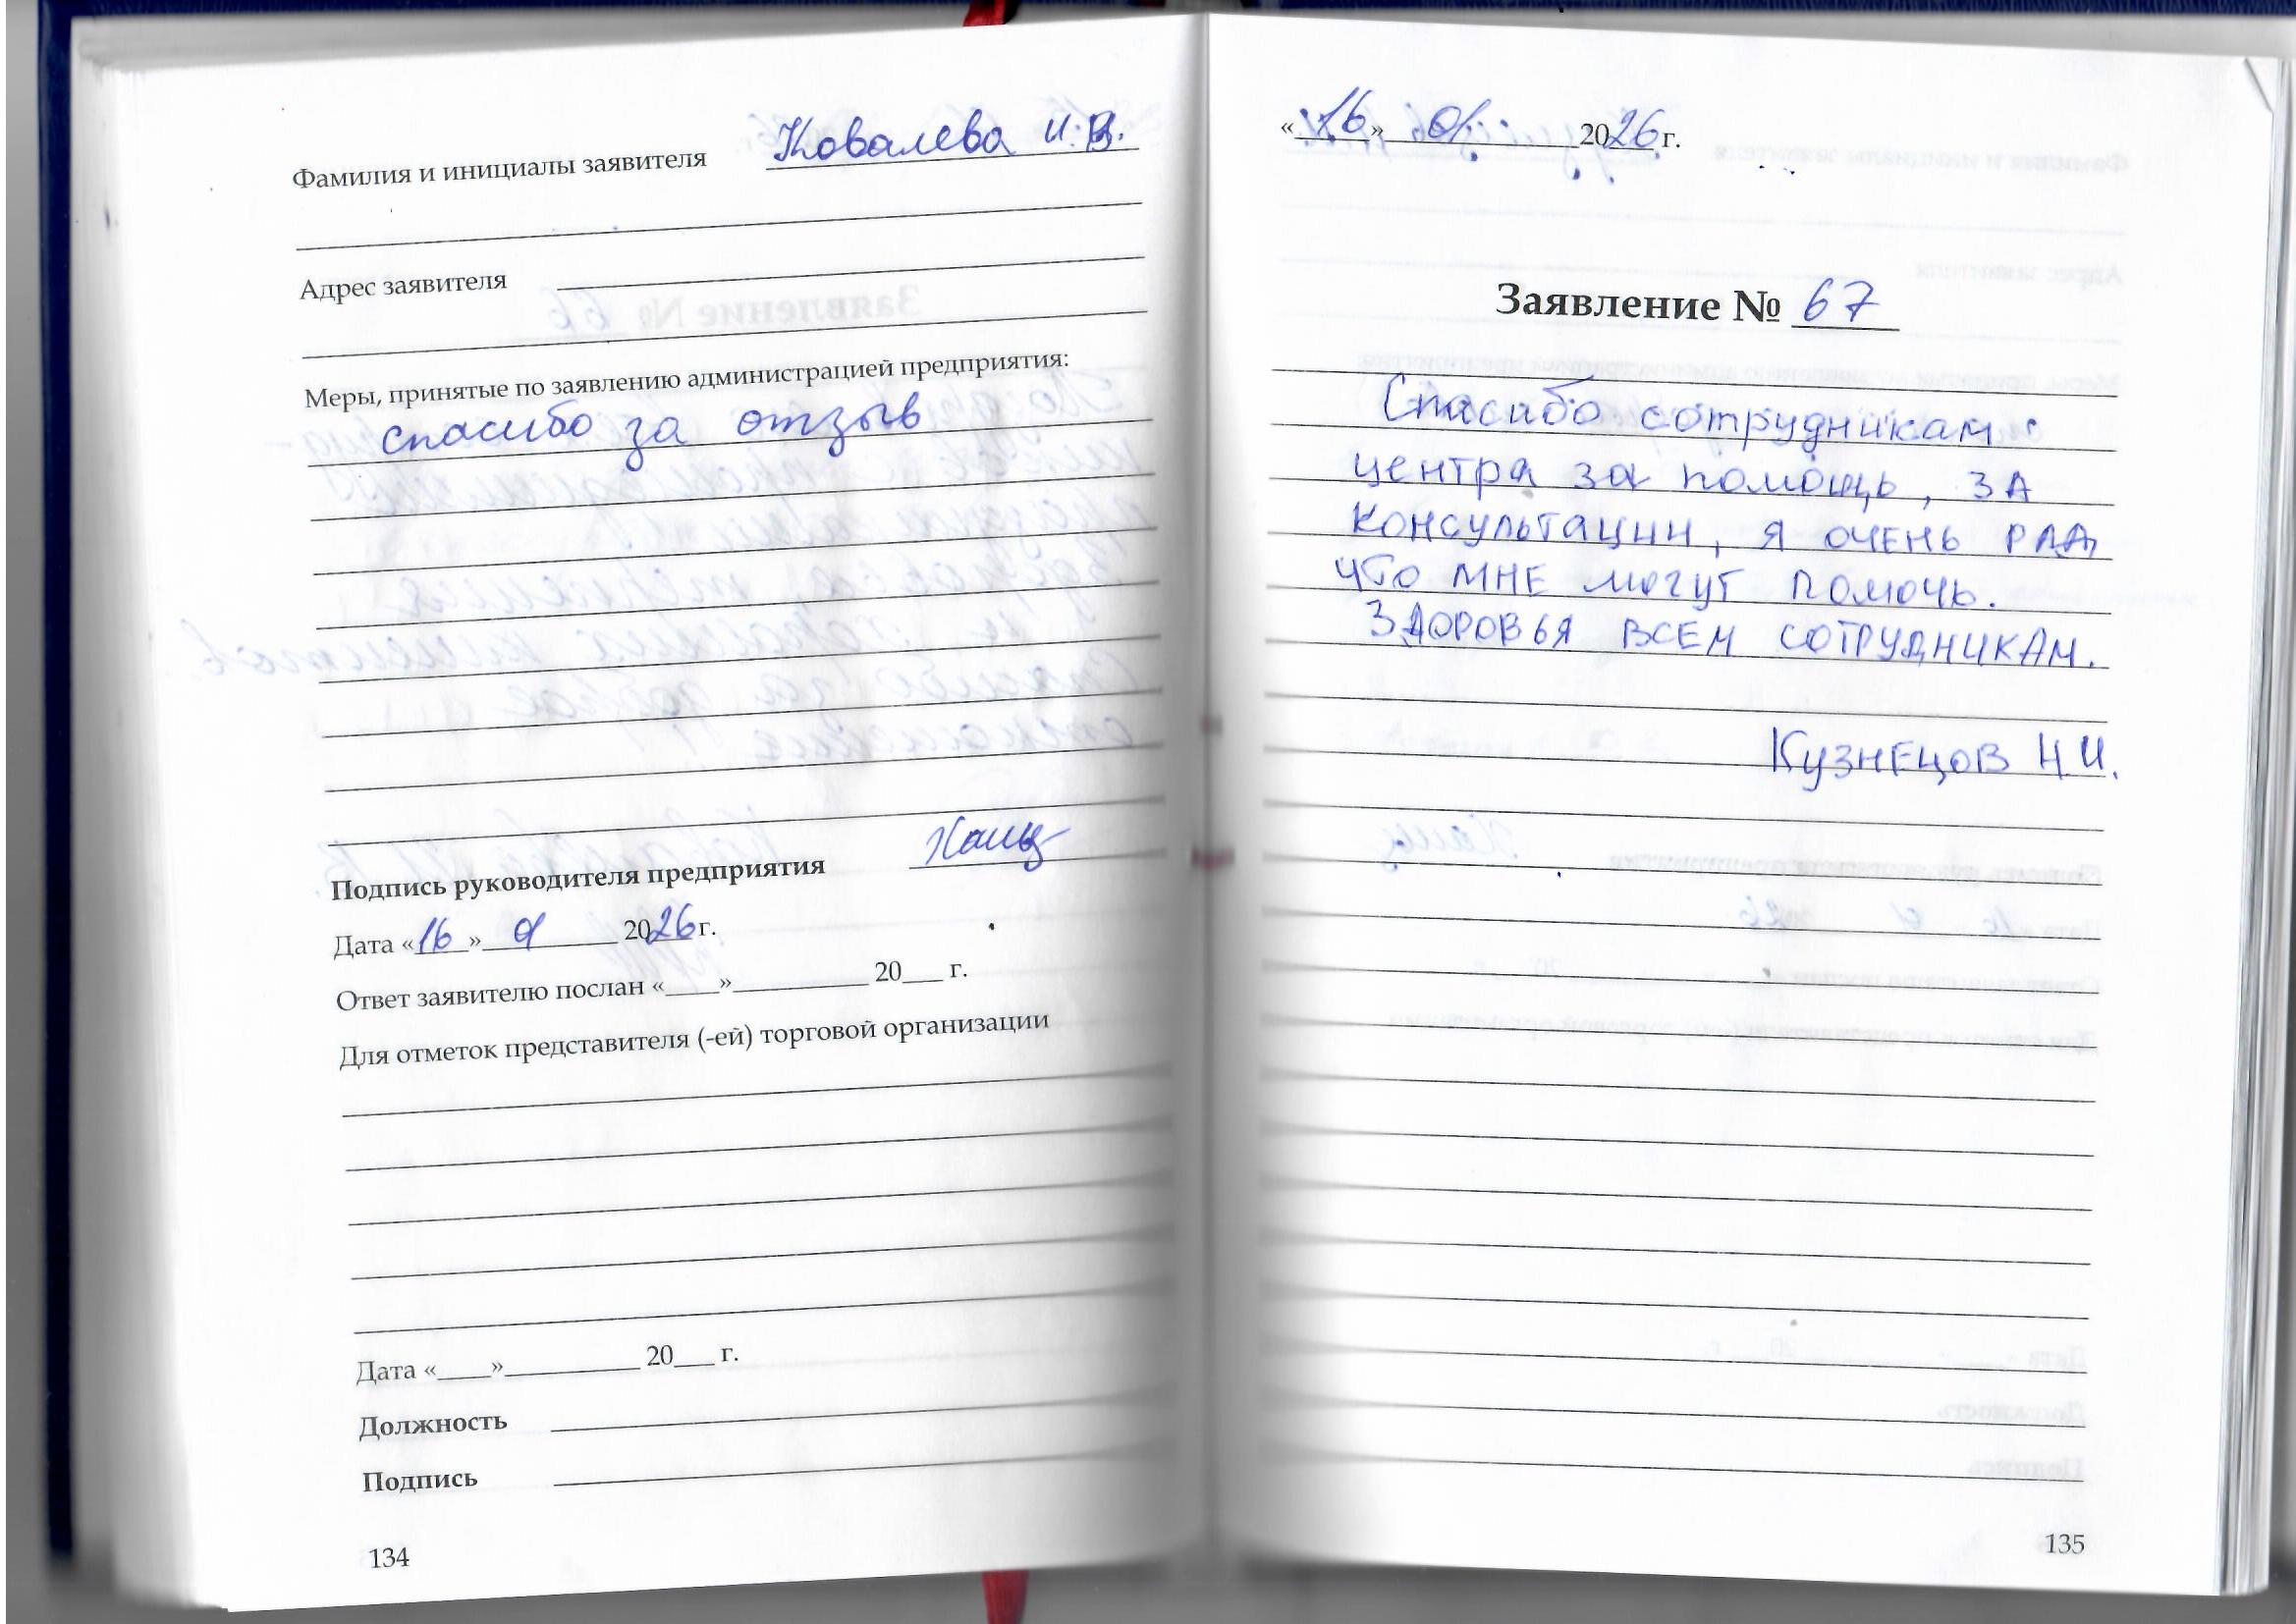 Фамилия и инициалы заявителя Ковалева И.В.
Адрес заявителя
Меры, принятые по заявлению администрацией предприятия:
спасибо за отзыв
Подпись руководителя предприятия
Дата «16» 01 2026 г.
Ответ заявителю послан «____»__________ 20___ г.
Для отметок представителя (-ей) торговой организации
Дата «____»__________ 20___ г.
Должность
Подпись
134
«16» 01. 2026 г.
Заявление № 67
Спасибо сотрудникам
центра за помощь, за
консультации, я очень рад,
что мне могут помочь.
Здоровья всем сотрудникам.
Кузнецов Н.И.
135